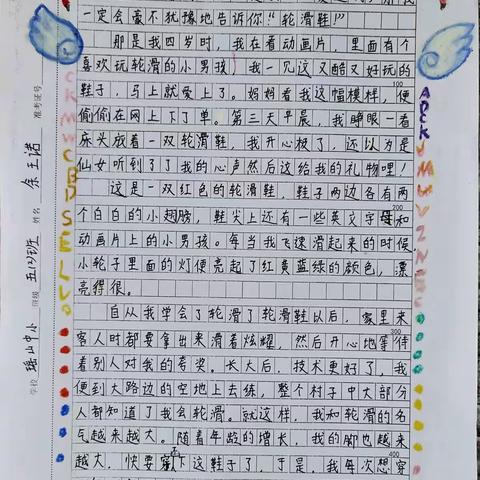 一定会毫不犹豫地告诉你："轮滑鞋！"
那是我四岁时，我在看动画片，里面有个
喜欢玩轮滑的小男孩，我一见这又酷又好玩的
鞋子，马上就爱上了。妈妈看我这幅模样，便
偷偷在网上下了单。第三天早晨，我睁眼一看
床头放着一双轮滑鞋，我开心极了，还以为是
仙女听到了了我的心声然后送给我的礼物哩！
这是一双红色的轮滑鞋，鞋子两边各有两
个白白的小翅膀，鞋尖上还有一些英文字母和
动画片上的小男孩。每当我飞速滑起来的时候，
小轮子里面的灯便亮起了红黄蓝绿的颜色，漂
亮得很。
自从我学会了轮滑了轮滑鞋以后，家里来
客人时都要拿出来滑着炫耀，然后开心地等待
着别人对我的夸奖。长大后，技术更好了，我
便到大路边的空地上去练，整个村子中大部分
人都知道了我会轮滑。就这样，我和轮滑的名
气越来越大。随着年龄的增长，我的脚也越来
越大，快要穿不下这鞋子了，于是，我每次想穿
100
200
300
400
学校 瑶山中小 班级 五(2)班 姓名 余玉诺 准考证号